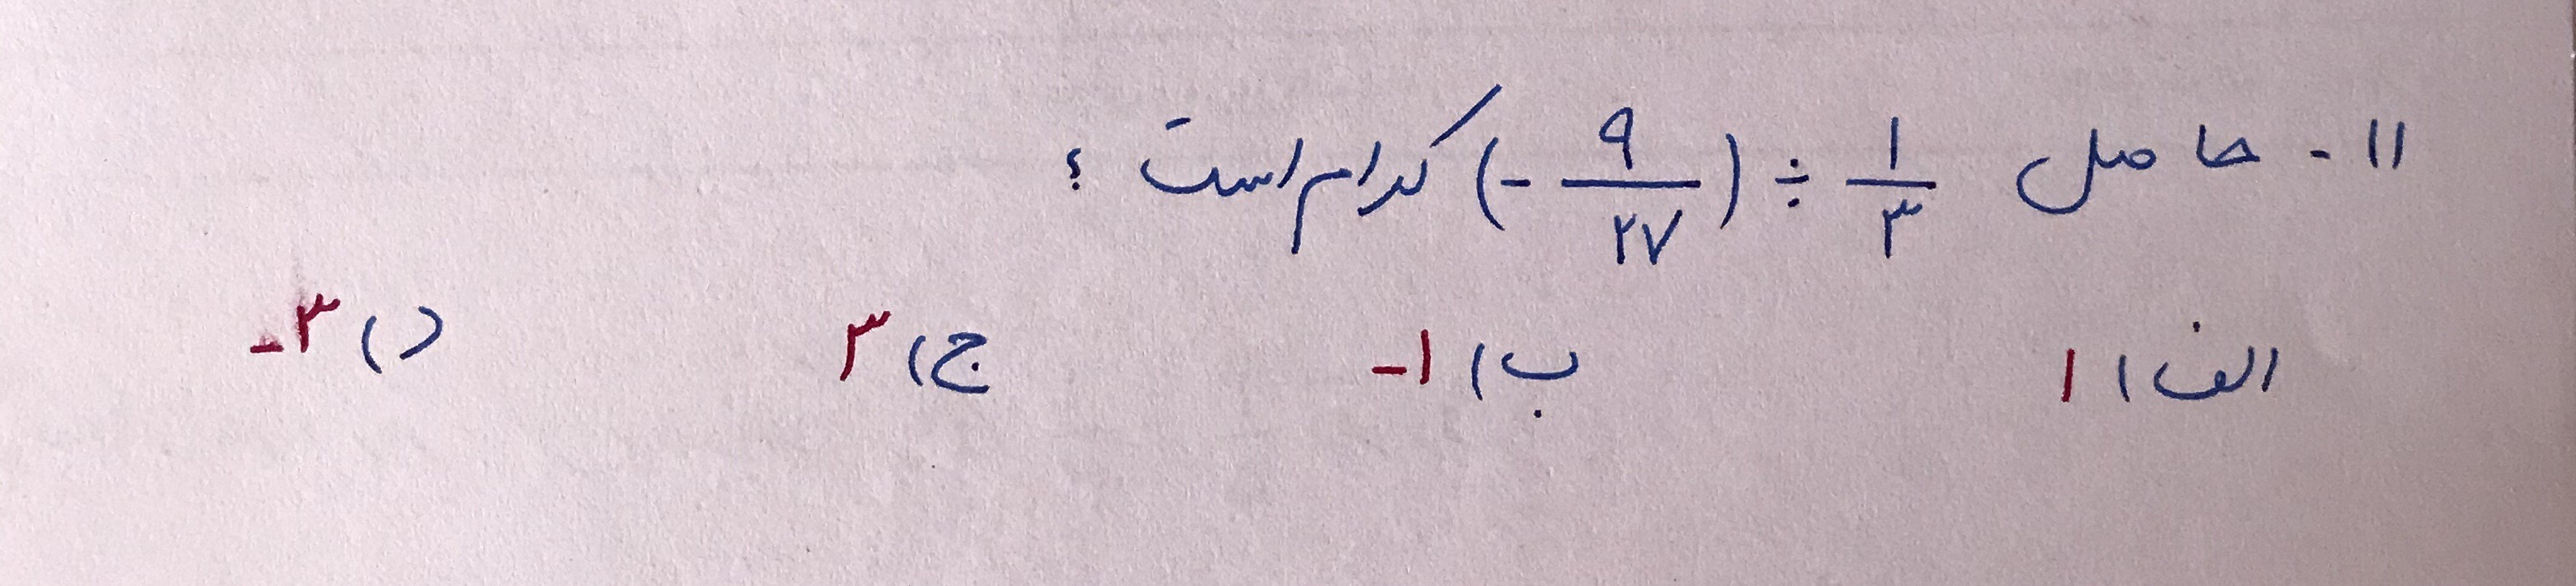 ۱۱- حاصل (-۹/۲۷) ÷ ۱/۳ کدام است ؟
الف) ۱ ب) -۱ ج) ۳ د) -۳